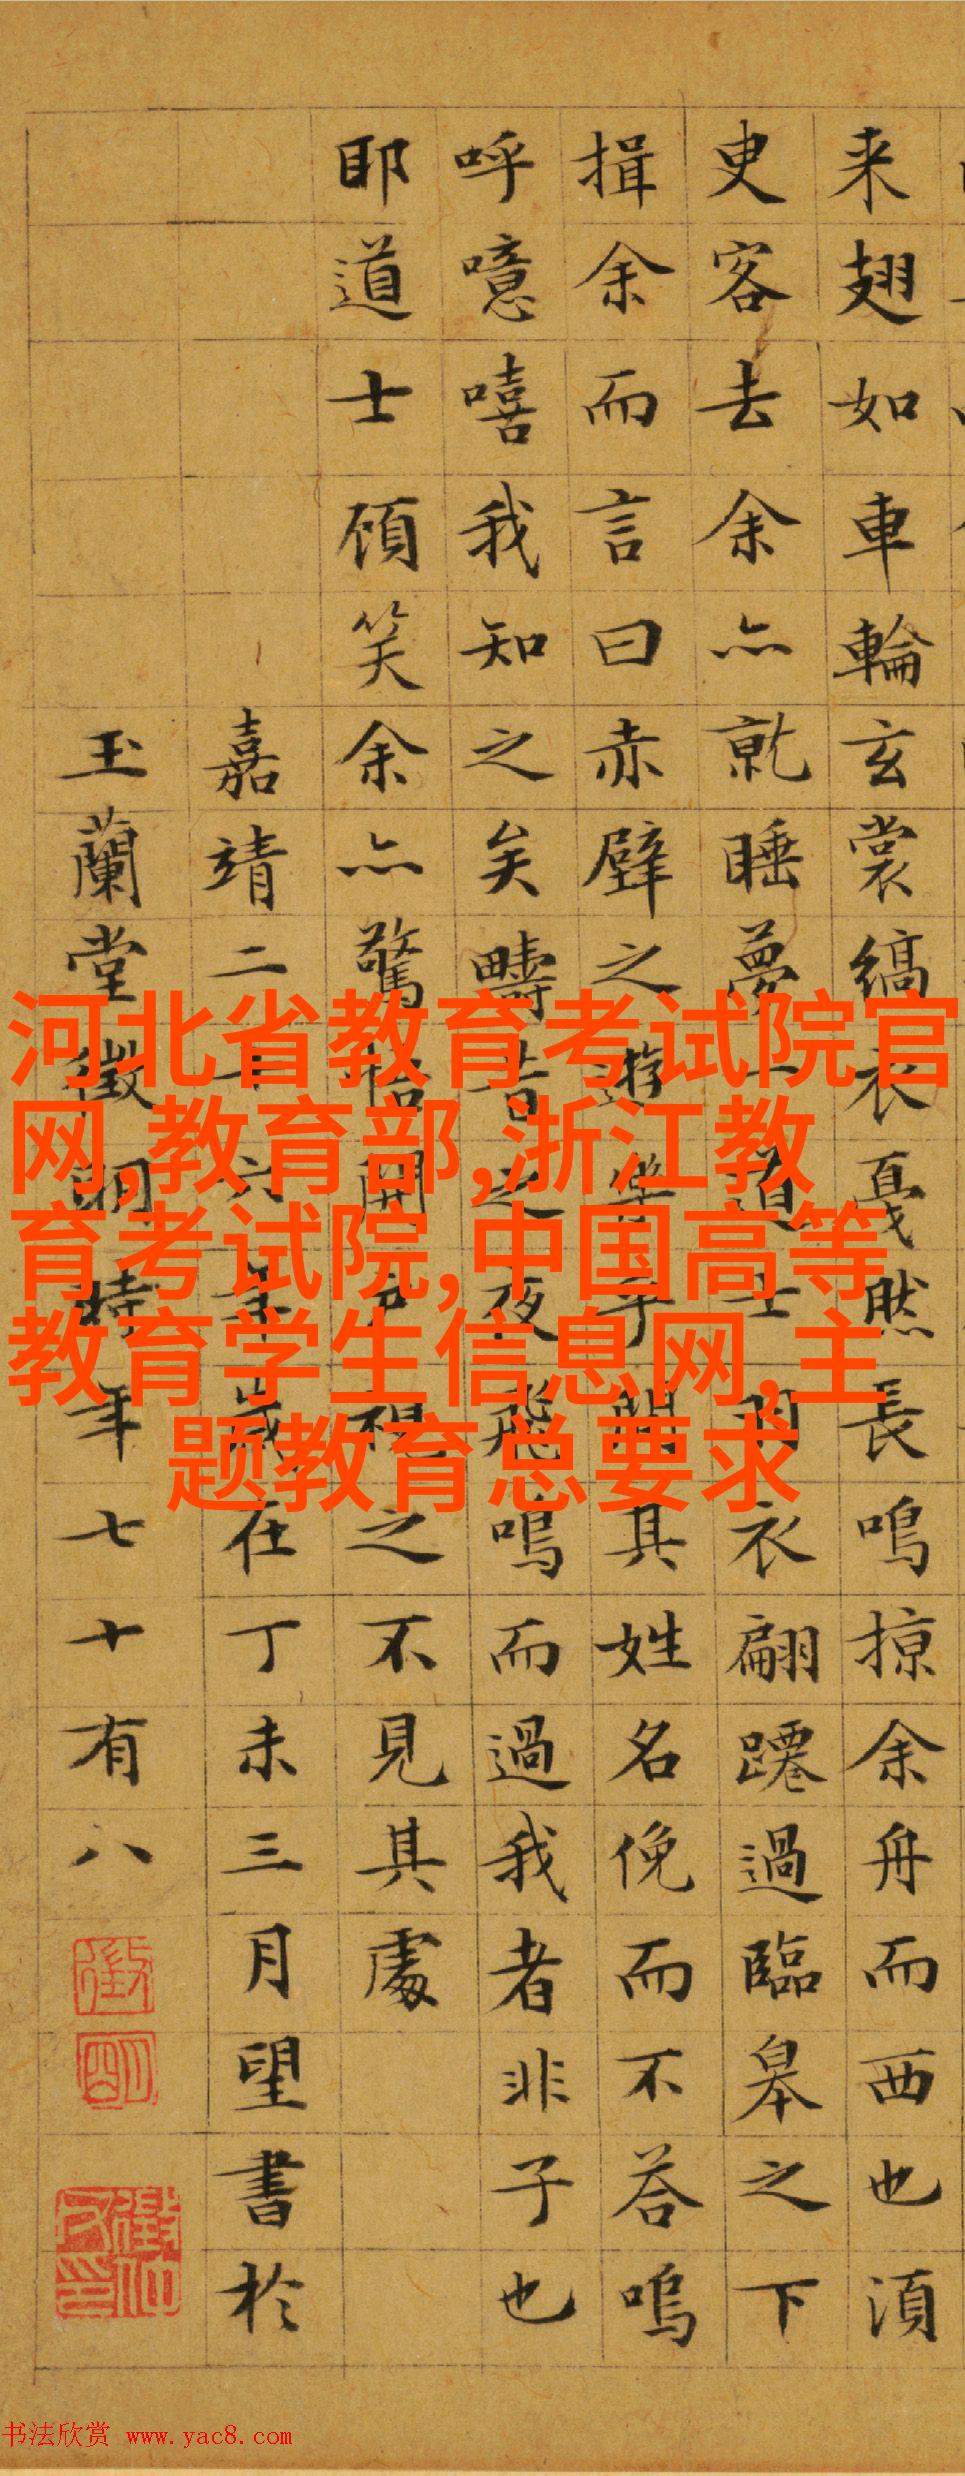 来翅如車輪玄裳縞衣戛然長鳴掠余舟而西也湏
臾客去余亦就睡夢一道士羽衣翩躚過臨皋之下
揖余而言曰赤壁之遊樂乎問其姓名俛而不答嗚
呼噫嘻我知之矣疇昔之夜飛鳴而過我者非子也
耶道士顧笑余亦驚悟開戶視之不見其處
嘉靖二十六年歲在丁未三月望書於
玉蘭堂徵明時年七十有八
徵
明
河北省教育考试院官
网,教育部,浙江教
育考试院,中国高等
教育学生信息网,主
题教育总要求
书法欣赏 www.yac8.com